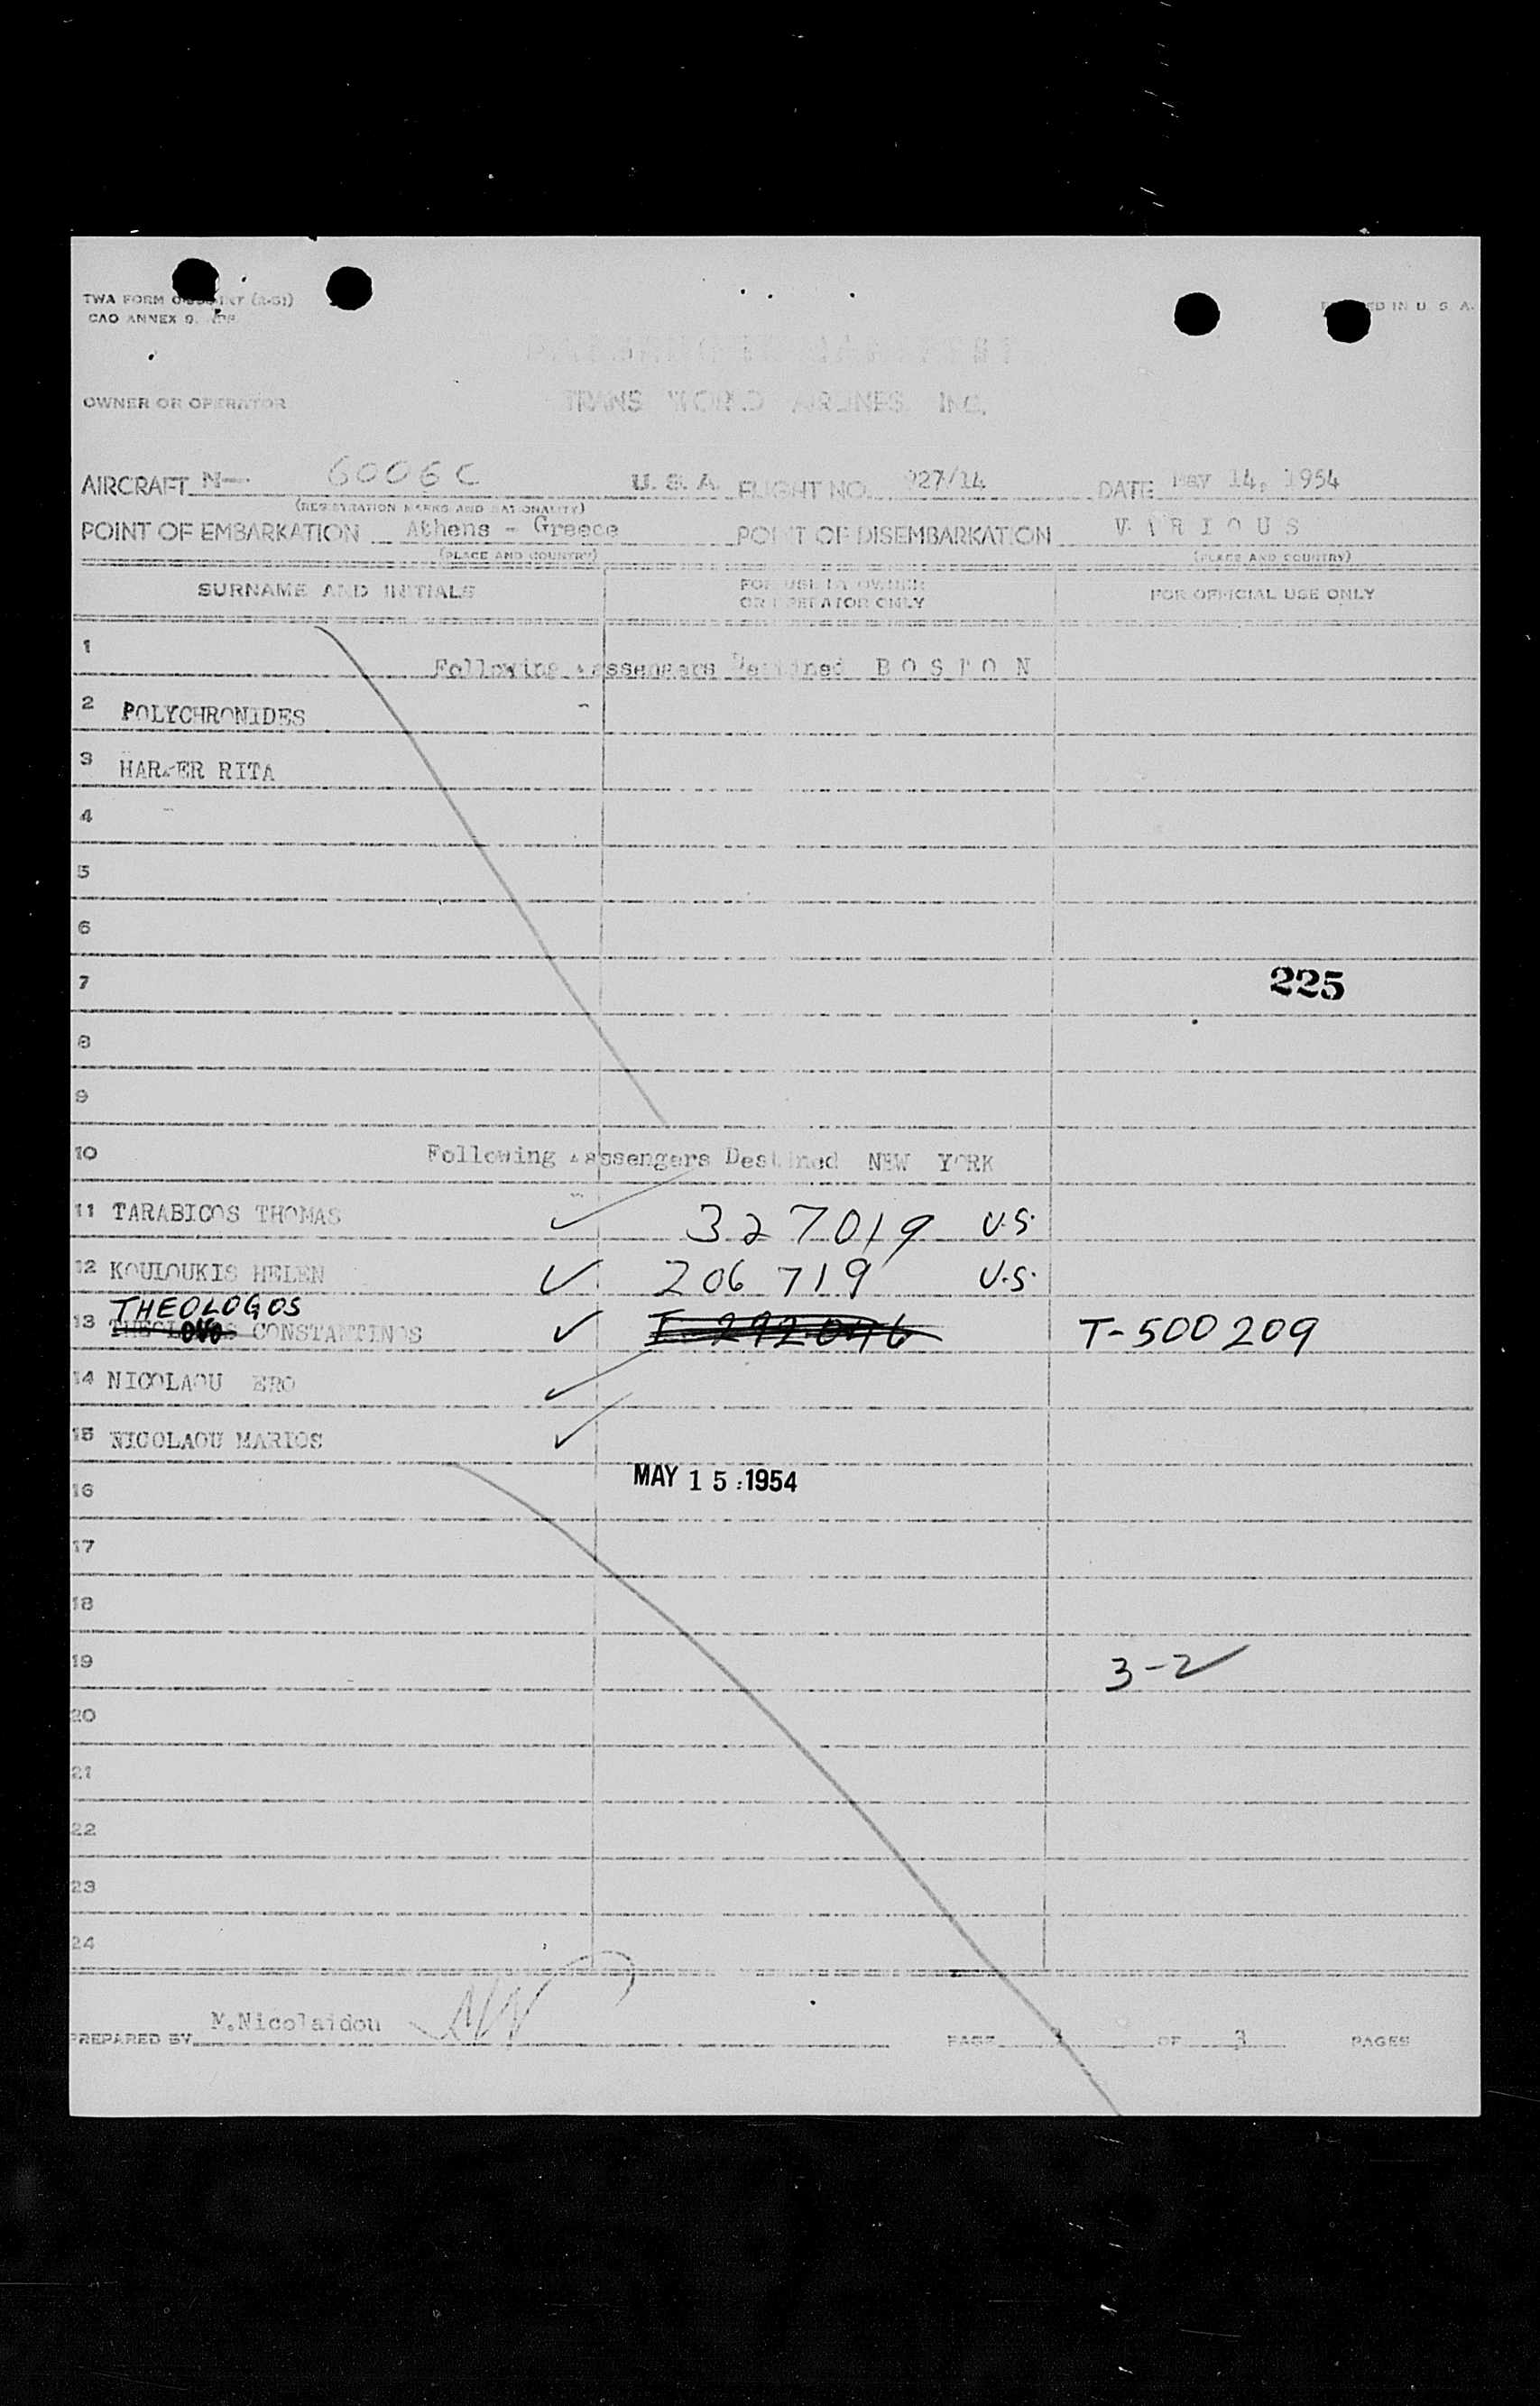 TWA FORM
CAO ANNEX 9,
IN U. S. A.
OWNER OR OPERATOR
TRANS WORLD AIRLINES, INC.
AIRCRAFT N- 6006C U. S. A. FLIGHT NO. 927/14 DATE May 14, 1954
(REGISTRATION MARKS AND NATIONALITY)
POINT OF EMBARKATION Athens - Greece POINT OF DISEMBARKATION V A R I O U S
(PLACE AND COUNTRY) (PLACE AND COUNTRY)
SURNAME AND INITIALS FOR USE BY OWNER OR OPERATOR ONLY FOR OFFICIAL USE ONLY
1 Following Passengers Destined B O S T O N
2 POLYCHRONIDES
3 RITA
4
5
6
7 225
8
9
10 Following Passengers Destined NEW YORK
11 TARABICOS THOMAS 327019 U.S.
12 KOULOUKIS HELEN 206719 U.S.
THEOLOGOS
13 CONSTANTINOS T-500209
14 NICOLAOU ERO
15 NICOLAOU MARIOS
16 MAY 15 1954
17
18
19 3-2
20
21
22
23
24
PREPARED BY M.Nicolaidou PAGE OF 3 PAGES